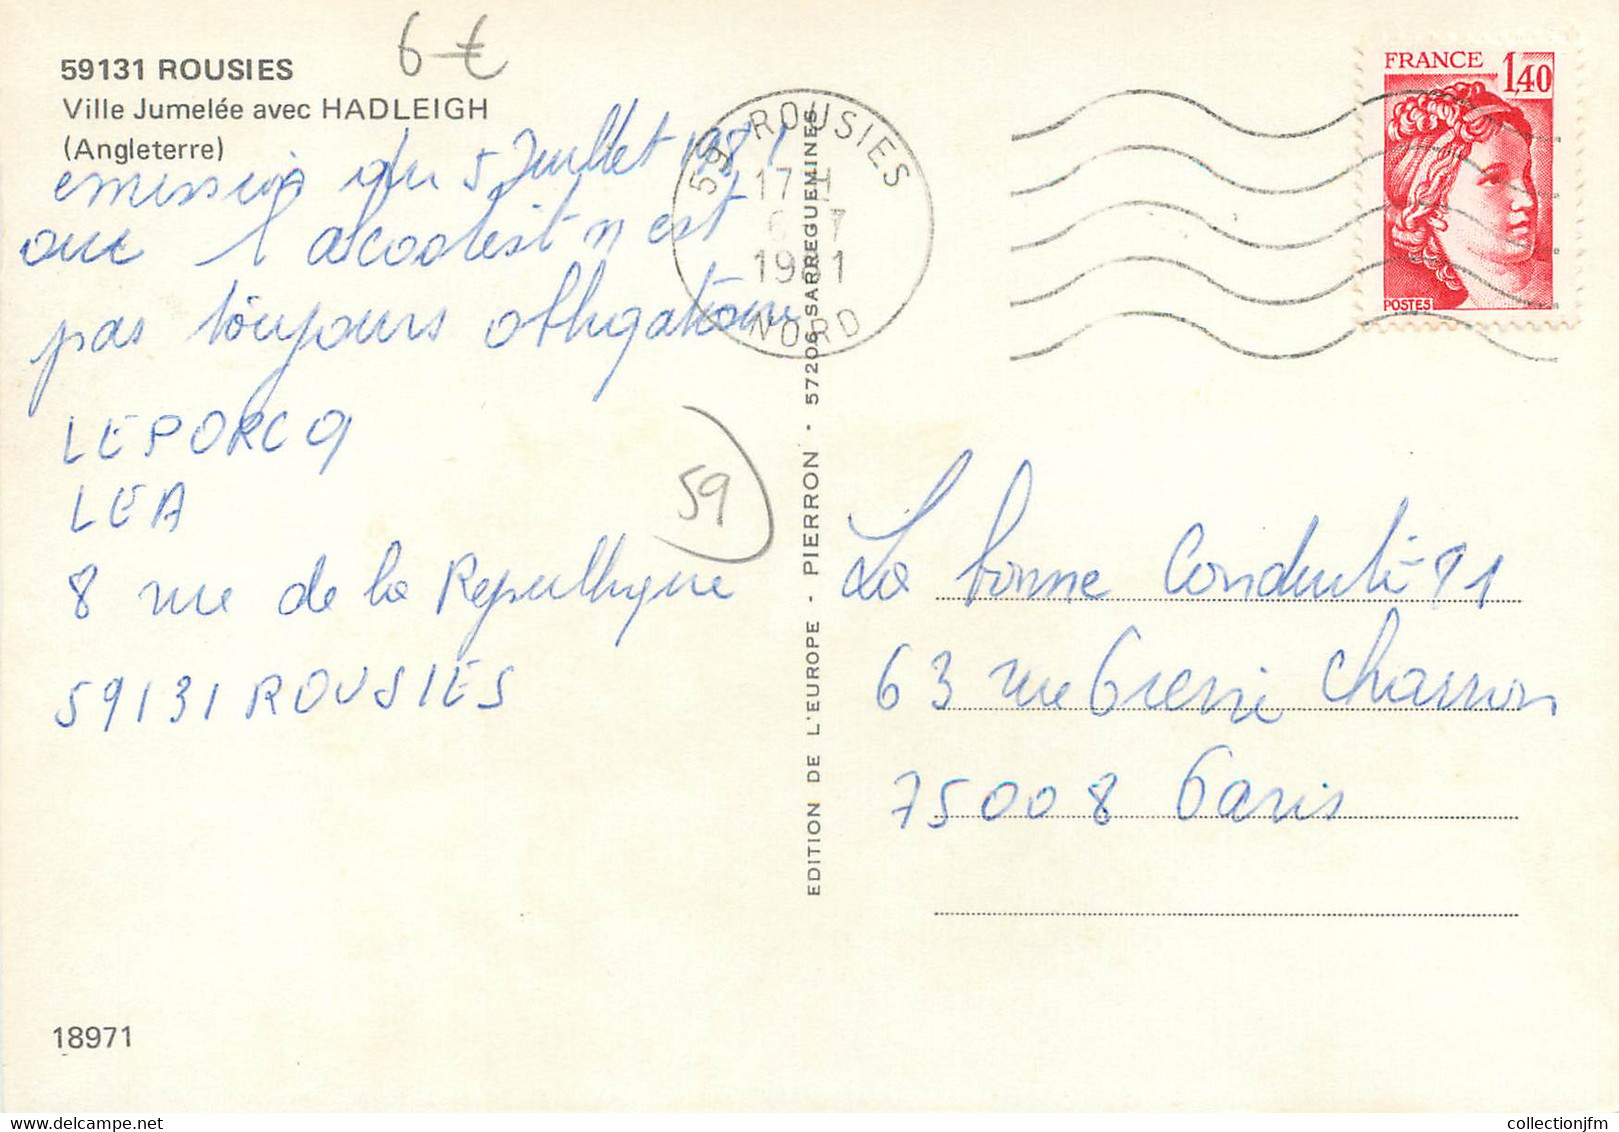 6 €
59131 ROUSIES
Ville Jumelée avec HADLEIGH
(Angleterre)
emission du 5 Juillet 1981
oui l'alcootest n est
pas toujours obligatoire
LEPORCQ
LEA
8 rue de la Republique
59131 ROUSIES
59
18971
EDITION DE L'EUROPE - PIERRON - 57206 SARREGUEMINES
59 ROUSIES
17 H
6 7
1981
NORD
FRANCE
1,40
POSTES
La bonne Conduite 81
63 rue Pierre Charron
75008 Paris
collectionjfm